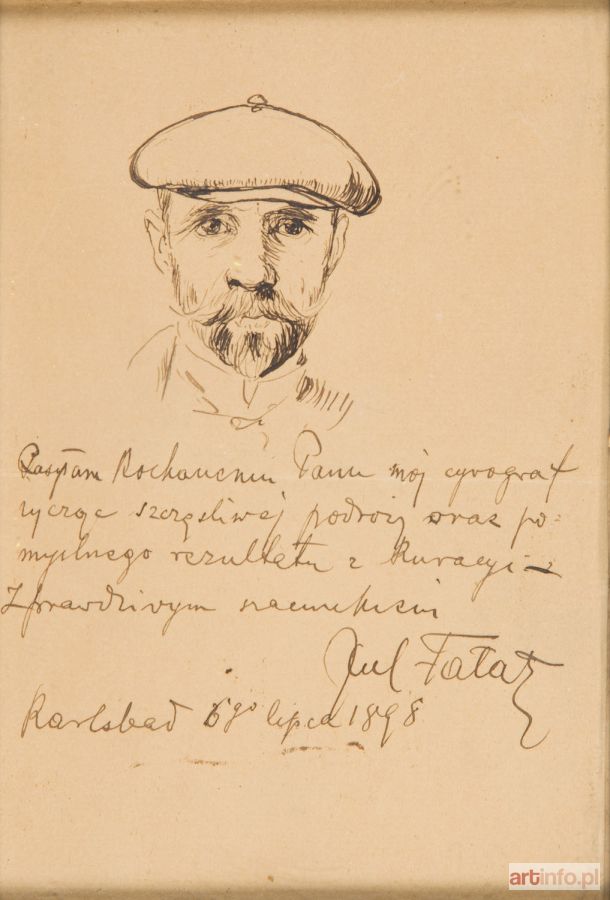 Posyłam Kochanemu Panu mój cyrograf
życząc szczęśliwej podróży oraz po-
myślnego rezultatu z Kuracyi –
Z prawdziwym szacunkiem
Jul Fałat
Karlsbad 6go lipca 1898
artinfo.pl